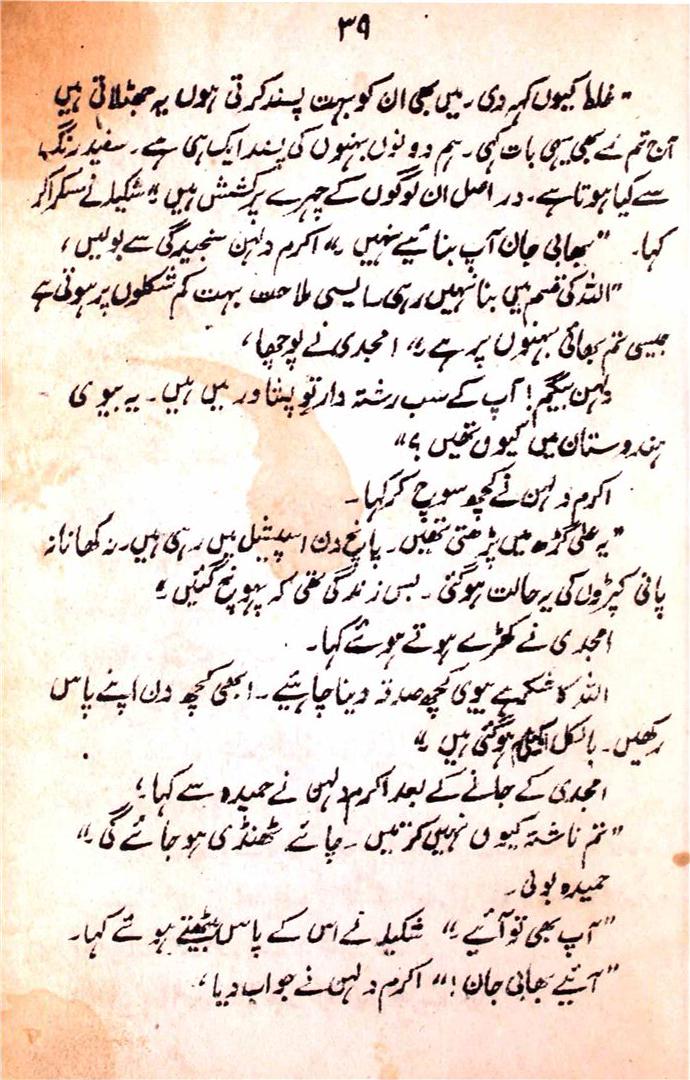 ۳۹
"غلط کیوں کہہ دی۔ میں بھی ان کو بہت پسند کرتی ہوں یہ جھٹلاتی ہیں
آج تم نے بھی یہی بات کہی۔ ہم دونوں بہنوں کی پسند ایک ہی ہے۔ سفید رنگ
سے کیا ہوتا ہے۔ در اصل ان لوگوں کے چہرے پرکشش ہیں" شکیلہ نے مسکرا کر
کہا۔ "بھابی جان آپ بنائیے نہیں۔" اکرم دلہن سنجیدگی سے بولیں،
"اللہ کی قسم میں بنا نہیں رہی۔ ایسی ملاحت بہت کم شکلوں پر ہوتی ہے
جیسی تم بھائی بہنوں پر ہے۔" امجدی نے پوچھا،
دلہن بیگم! آپ کے سب رشتہ دار تو پشاور میں ہیں۔ یہ بیوی
ہندوستان میں کیوں تھیں؟"
اکرم دلہن نے کچھ سوچ کر کہا۔
"یہ علی گڑھ میں پڑھتی تھیں۔ پانچ دن اسپیشل میں رہی ہیں۔ نہ کھانا نہ
پانی کپڑوں کی یہ حالت ہو گئی۔ بس زندگی تھی کہ پہونچ گئیں۔"
امجدی نے کھڑے ہوتے ہوئے کہا۔
اللہ کا شکر ہے بیوی کچھ صدقہ دینا چاہئیے۔ ابھی کچھ دن اپنے پاس
رکھیں۔ بالکل ہو گئی ہیں۔"
امجدی کے جانے کے بعد اکرم دلہن نے حمیدہ سے کہا،
"تم ناشتہ کیوں نہیں کرتیں۔ چائے ٹھنڈی ہو جائے گی۔"
حمیدہ بولی۔
"آپ بھی تو آئیے۔" شکیلہ نے اس کے پاس بیٹھتے ہوئے کہا۔
"آئیے بھابی جان!" اکرم دلہن نے جواب دیا،